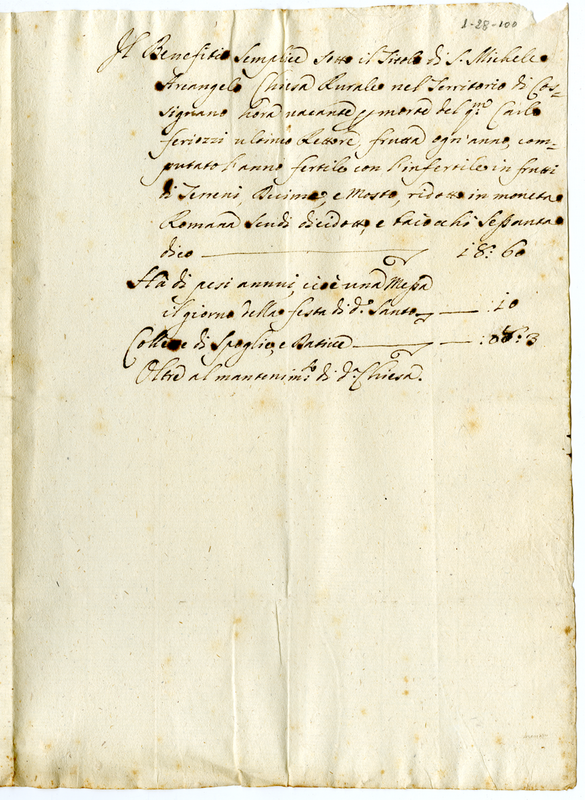 1-28-100
Il Benefitio Semplice sotto il Titolo di S. Michele
Arcangelo Chiesa Rurale nel Territorio di Cos=
signano hora vacante p morte del qm Carlo
feriozzi ultimo Rettore, frutta ogn'anno, com=
putato l'anno fertile con l'infertile in frutti
di Terreni, e Mosto, ridotti in moneta
Romana Scudi dicidotto, e baiocchi Sessanta
dico 18: 60
Hà di pesi annui, cioè una Messa
il giorno della festa di do. Santo :10
Collette di Spoglio, e
Oltre al mantenimto. di da. Chiesa.